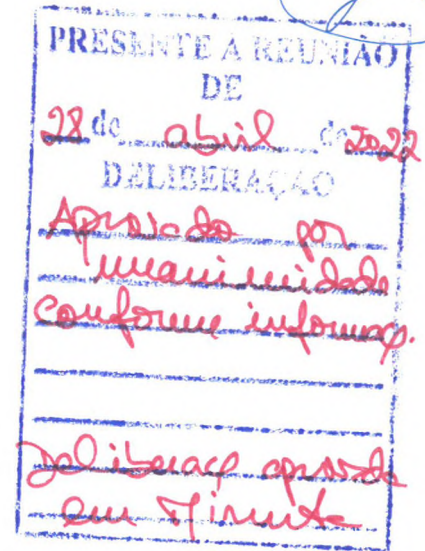 PRESENTE A REUNIÃO
DE
28 de abril de 2022
DELIBERAÇÃO
Aprovado por
unanimidade
conforme informaç.
Deliberação aprovada
em Minuta